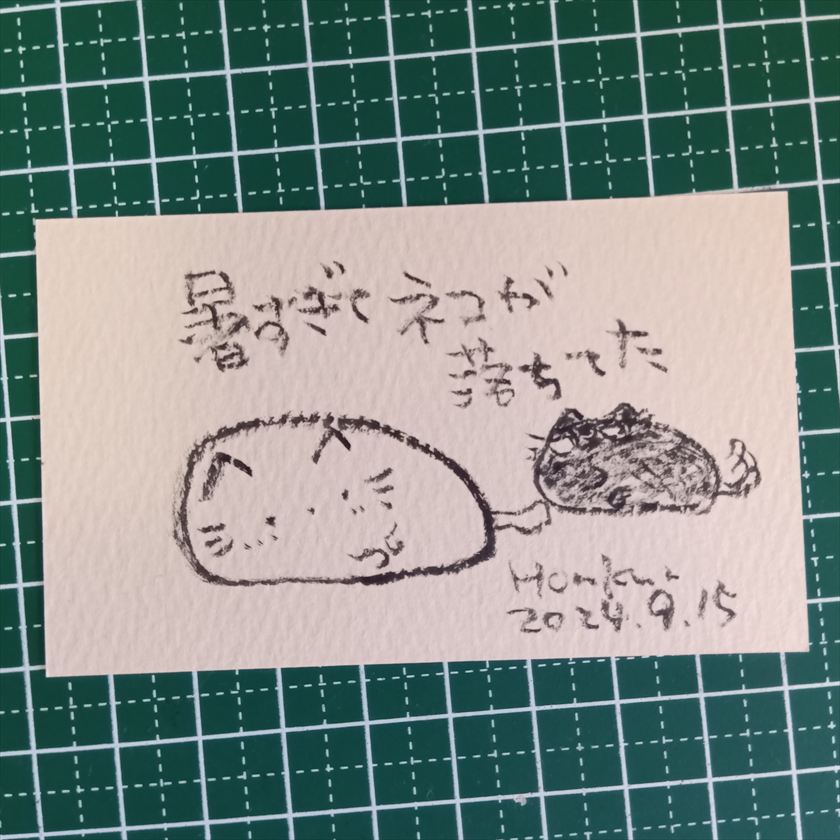 暑すぎてネコが
落ちてた
2024.9.15